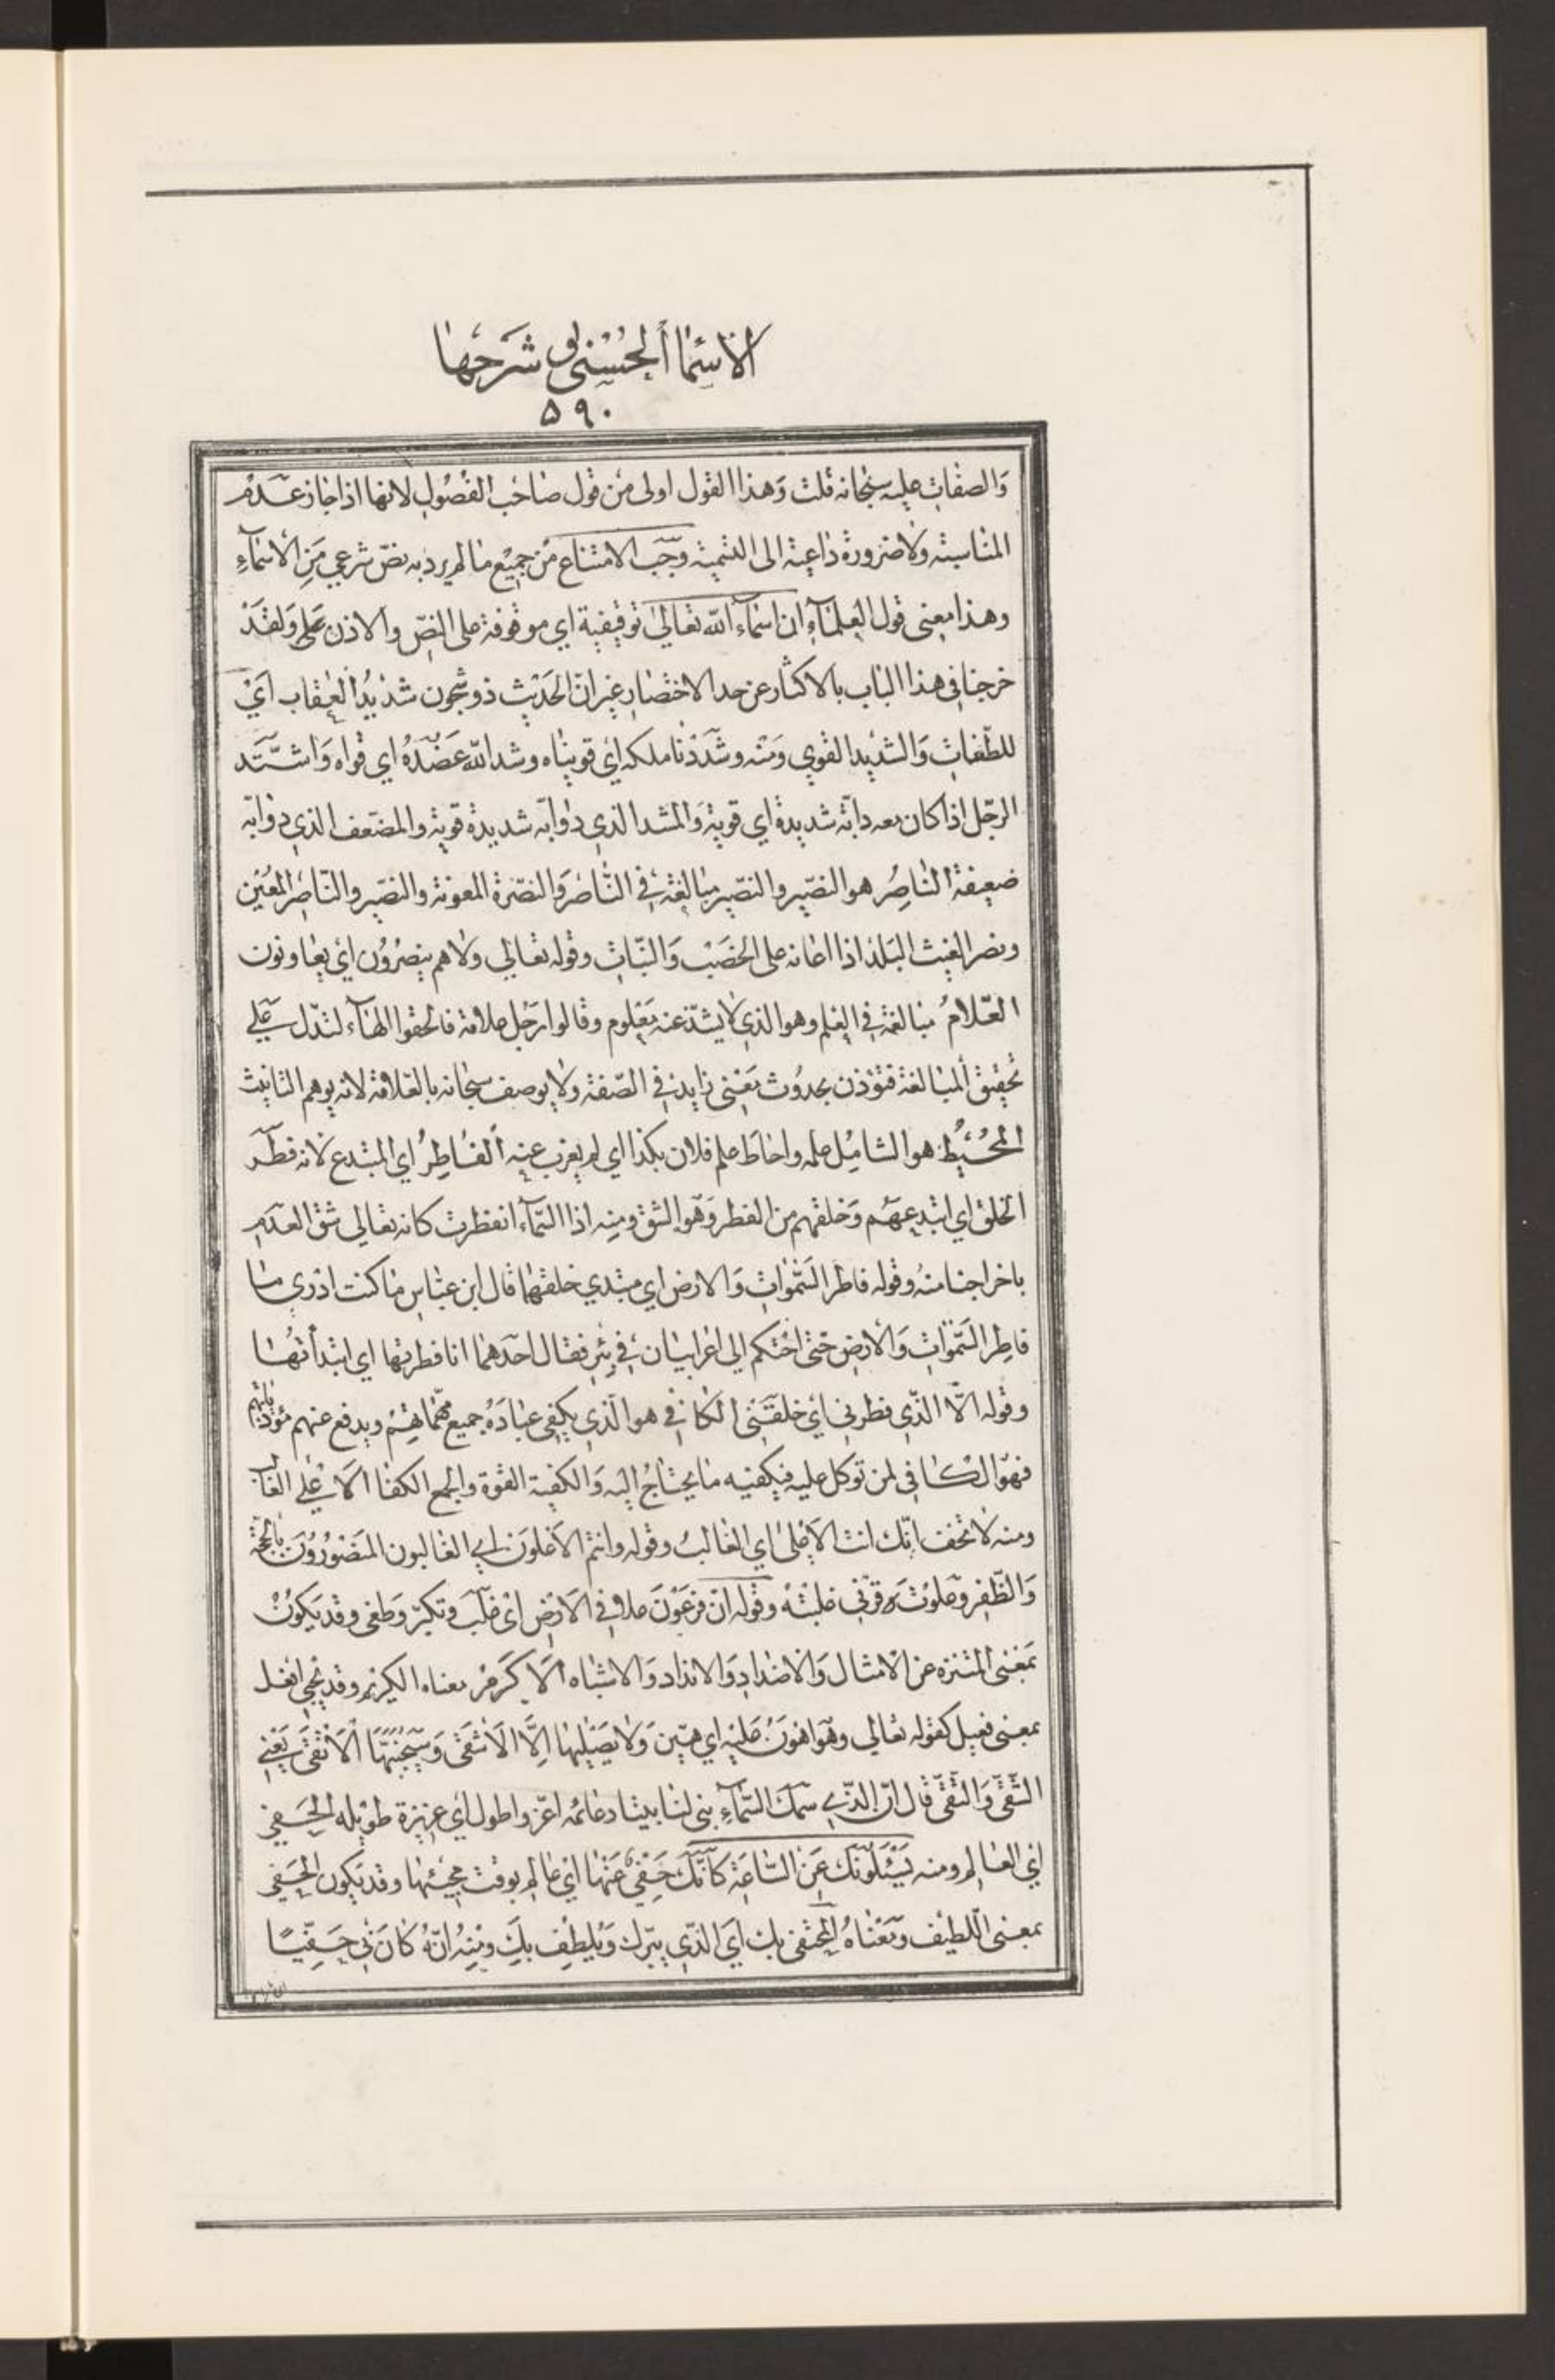 الاسماء الحسنى و شرحها
۵۹۰
وَالصفات عليه سبحانه قلت وَهذا القول اولى من قول صاحب الفصُول لانها اذا جاز عَدَم
المناسبته ولا ضرورة داعية الى التسمية وَجَب الامتناع من جميع ما لم يرد به نصّ شرعي مَنِ الأسمآءِ
وهذا معنى قول العلمآءِ ان اسمآء الله تعالى توقيفية اي موقوفة على النصّ والاذن على وَلقَدْ
خرجنا في هذا الباب بالاكثار عن حد الاختصار غير انّ الحَديث ذو شجون شَدْيدُ العِقاب اَيْ
للطّغات وَالشديد القوي وَمنه وشَدَدْنا ملكه اي قويناه وشد الله عَضُدَهُ اي قواه وَاشتَد
الرّجل اذا كان معه دابّة شديدة اي قوية وَالمشد الذي دوابّه شديدة قوية والمضعف الذي دوابّه
ضعيفة النّاصِرُ هو النصّير والنصّير مبالغة في النّاصر وَالنصّرة المعونة والنصّير والنّاصِر المعُين
ونصر الغيث البَلَد اذا اعانه على الخصَب وَالنّبات وقوله تعالى ولا هم ينصرُون اي يعاونون
العَلّامُ مبالغة في العِلم وهو الذي لا يشذّ عنه مَعْلوم وقالوا رَجُل علامة فالحقوا الهآء لتدّل علي
تحقيق المبالغة فتؤذن بحدُوث مَعْنى زايد في الصّفة ولا يوصف سبحانه بالعَلامة لانه يوهم التانيث
المُحُيطُ هو الشامِل علمه واحاطَ علم فلان بكذا اي لم يعزب عنه الفاطِرُ اي المبتدع لانه فطَر
الخلق اي ابتدعهم وَخلقهم من الفطر وَهو الشق ومِنه اذا السّمآء انفطرت كانه تعالى شق العدم
باخراجنا منهُ وقوله فاطر السَّمٰواتِ وَالارض اي مبتدي خلقهما قال ابن عبّاس ما كنت ادري ما
فاطِر السَّمٰواتِ وَالأرضِ حَتّى احْتكم الى اعرابيان في بِئرٍ فقال احَدهما انا فطرتها اي ابتدأتُها
وقوله الّا الذّي فطرني اي خلقَني الكافي هو الّذي يكفي عبادَهُ جميع مهّماتهِم ويدفع عنهم مؤذياتهم
فهوّ الكافي لمن توكل عليه فيكفيه ما يحتاجُ اليَه وَالكفية القوّة والجمع الكفا الاعْلى الغالب
ومنه لا تخف انّك انت الاعْلى اي الغالبُ وقوله وانتم الاعْلوَن اي الغالبون المنصُورُوَن بالحجة
وَالظّفِر وعلوت قرني غلبته وقوله انّ فرْعَوْنَ علا في الارض اي غلَب وتكبّر وَطغى وقد يَكونُ
بَمعْنى المتنزه عن الامثال وَالاضداد وَالانداد وَالاشباه الاكرَم معناه الكريم وقد يجي افعل
بمعنى فعيل كقوله تعالى وَهو اهوَنُ عَليْه اي هيّن وَلا يَصْليٰها اِلَّا الاَشقَى وَسَيُجَنَّبُهَا الاَتْقَى يعنِي
الشّقي وَالتّقيّ قال انّ الذّي سمَك السّمآءِ بنى لنا بيتا دعائمه اعزّ واطول اي عزيزة طويله الحَفي
اي العالِم ومنه يَسْئَلوُنَك عَنِ السّاعَة كاَنّكَ حَفِيٌّ عَنْها اي عالِم بوقت مجيئها وقد يَكون الحَفي
بمعنى اللّطيف وَمعْناهُ المحتفي بك اَي الذّي يبّرك وَيُلطِف بِكَ ومِنهُ انّهُ كانَ بي حَفيّاً